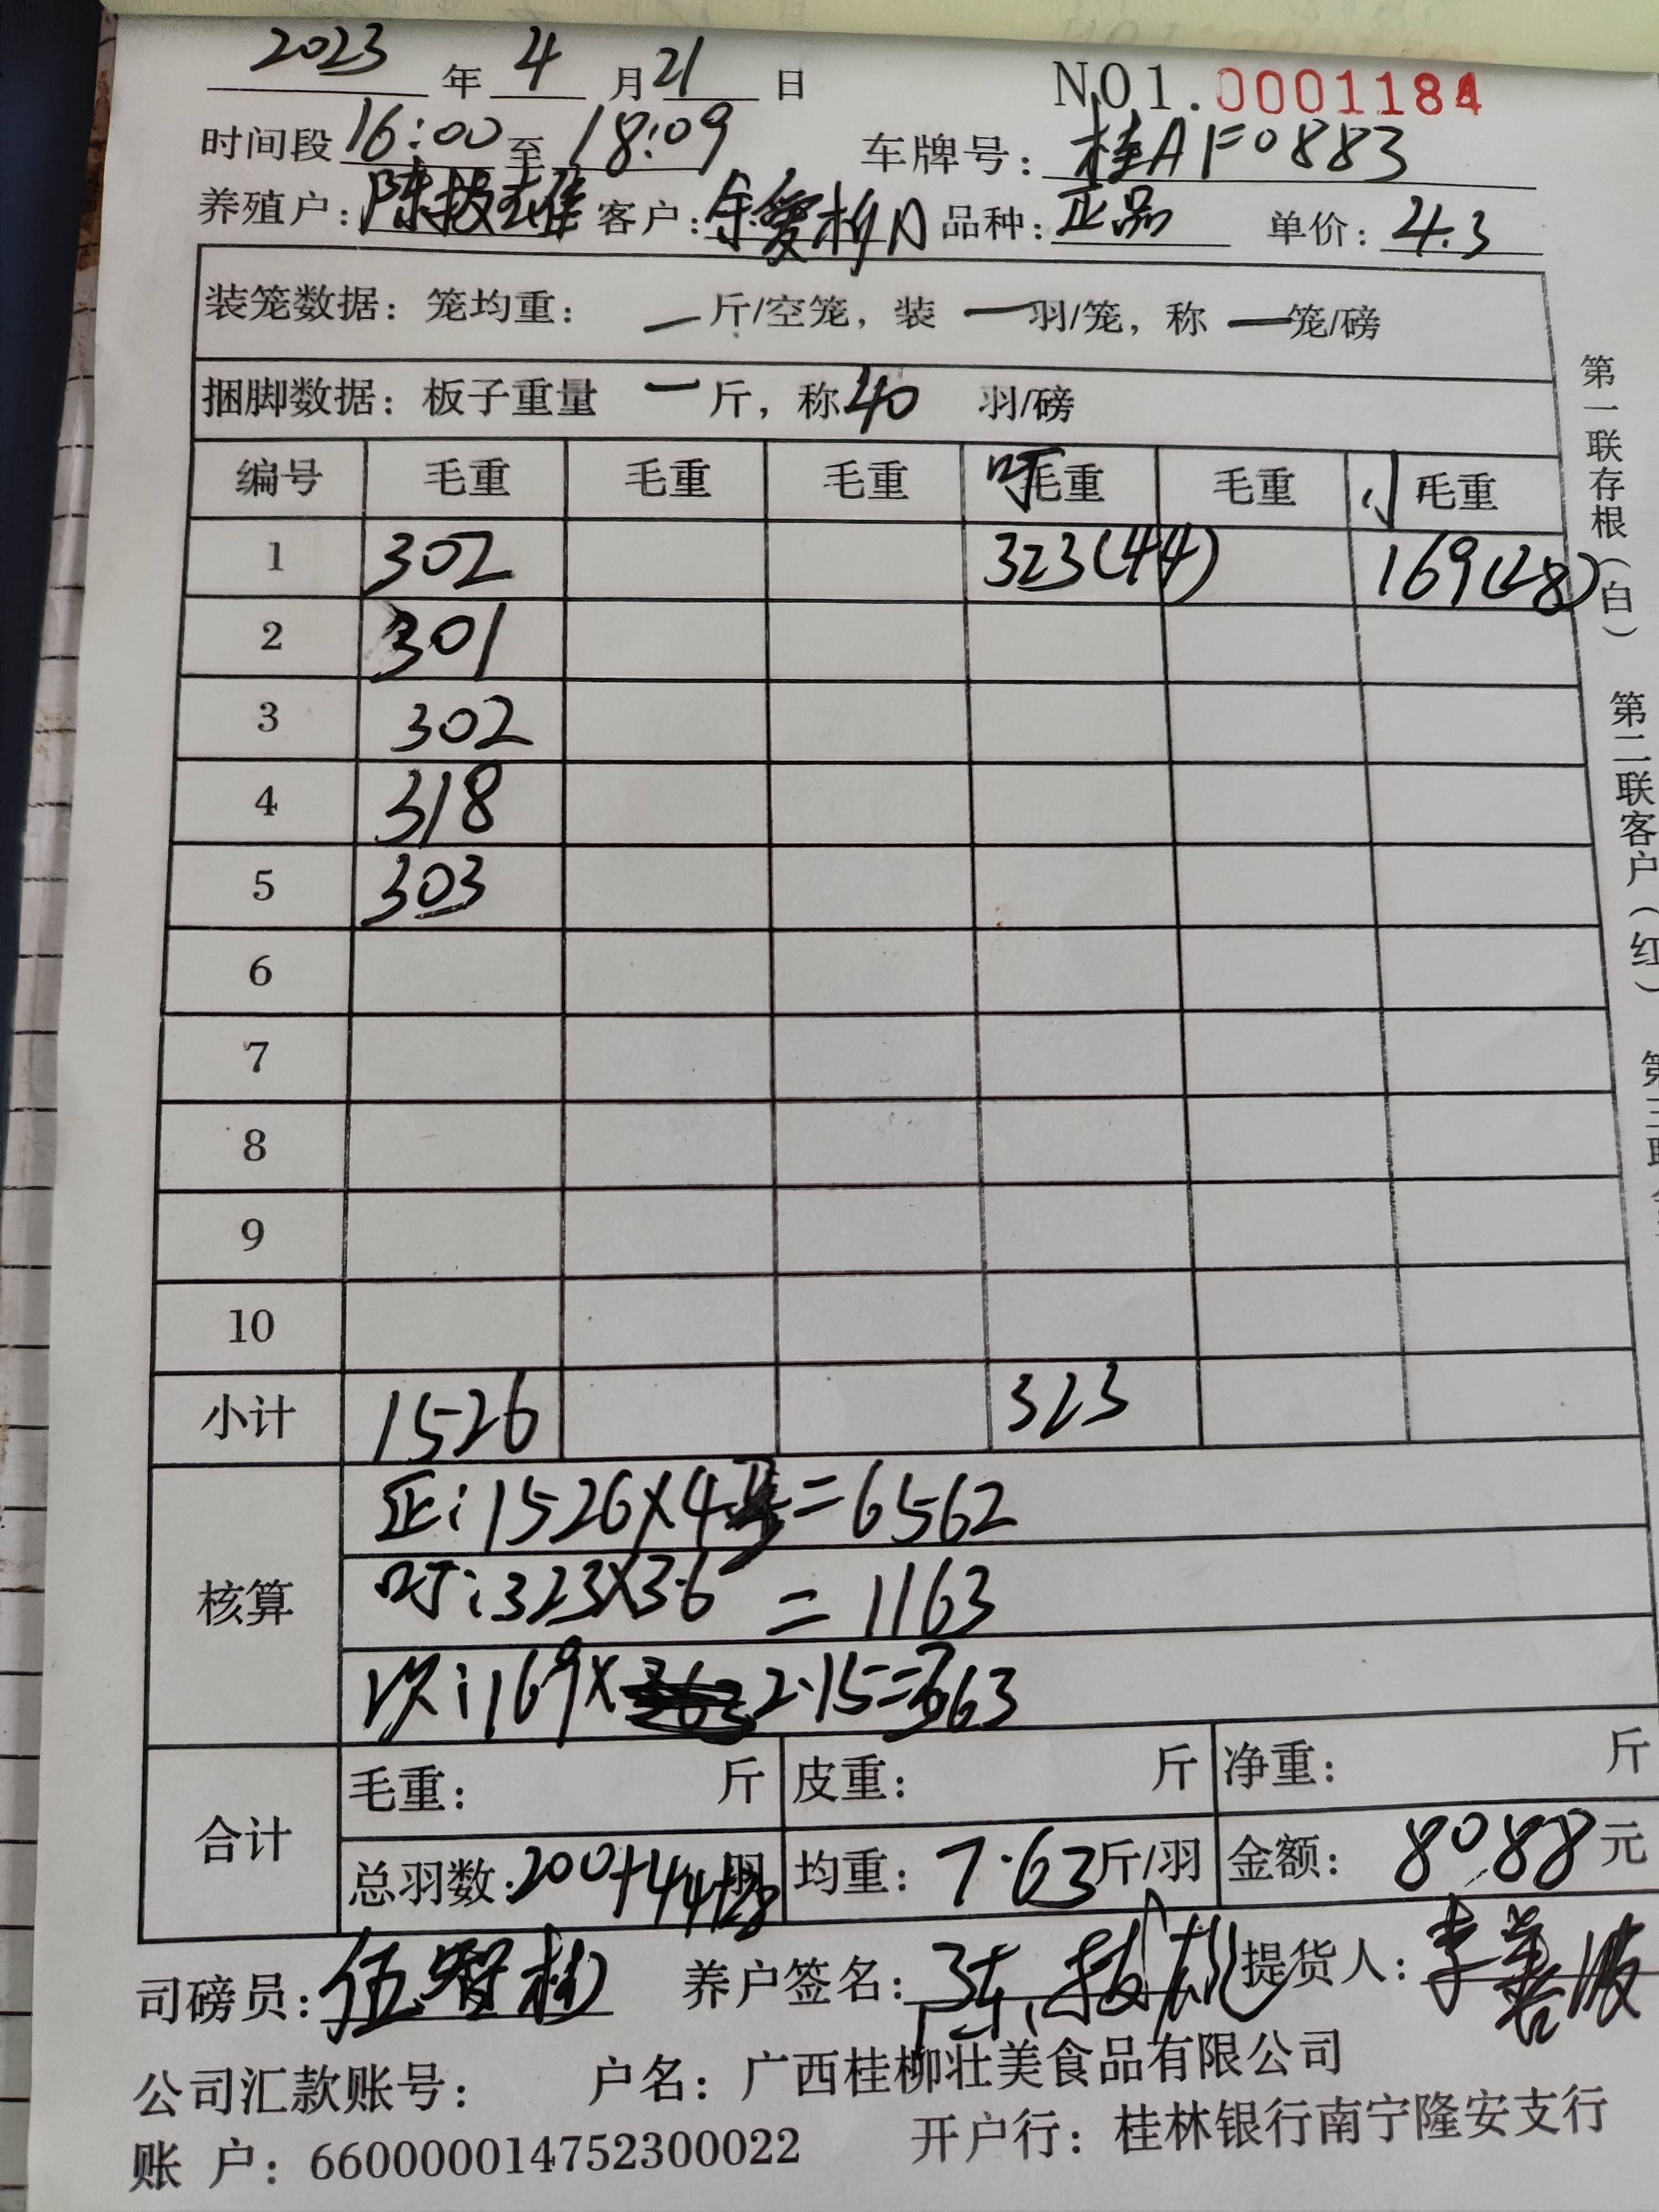 2023 年 4 月 21 日 NO1.0001184
时间段 16:00 至 18:09 车牌号: 桂AF0883
养殖户: 陈技雄 客户: 余爱柳 品种: 正品 单价: 4.3
装笼数据: 笼均重: 一 斤/空笼, 装 一 羽/笼, 称 一 笼/磅
捆脚数据: 板子重量 一 斤, 称 40 羽/磅
编号 毛重 毛重 毛重 吋 毛重 毛重 小 毛重
1 302 323(44) 169(28)
2 301
3 302
4 318
5 303
6
7
8
9
10
小计 1526 323
核算
正: 1526×4.3=6562
吋: 323×3.6=1163
次: 169×2.15=363
合计
毛重: 斤 皮重: 斤 净重: 斤
总羽数: 200+44+28 羽 均重: 7.63 斤/羽 金额: 8088 元
司磅员: 伍 养户签名: 陈技雄 提货人: 李善波
公司汇款账号: 户名: 广西桂柳壮美食品有限公司
账 户: 660000014752300022 开户行: 桂林银行南宁隆安支行
第一联存根(白) 第二联客户(红) 第三联